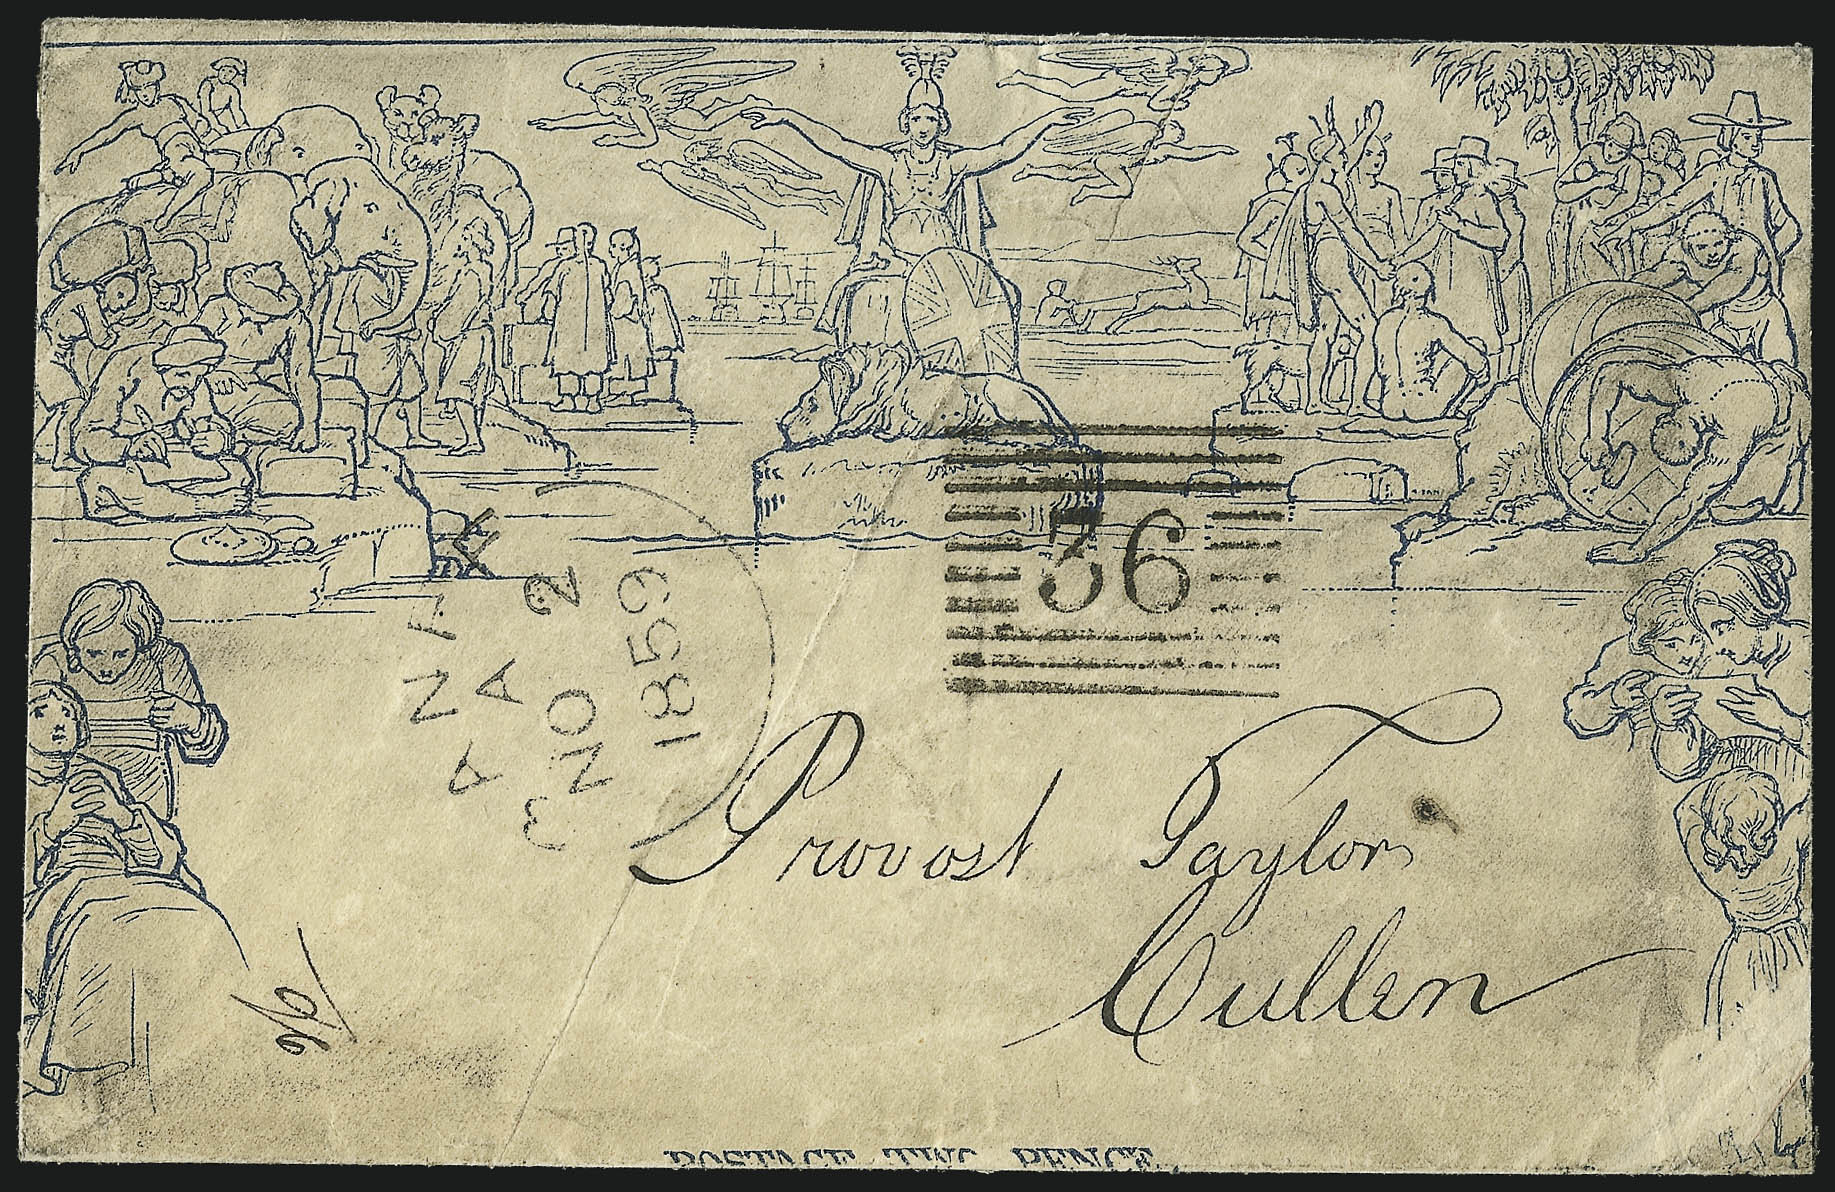 BANFF
A
NO 2
1859
36
Provost Taylor
Cullen
POSTAGE TWO PENCE